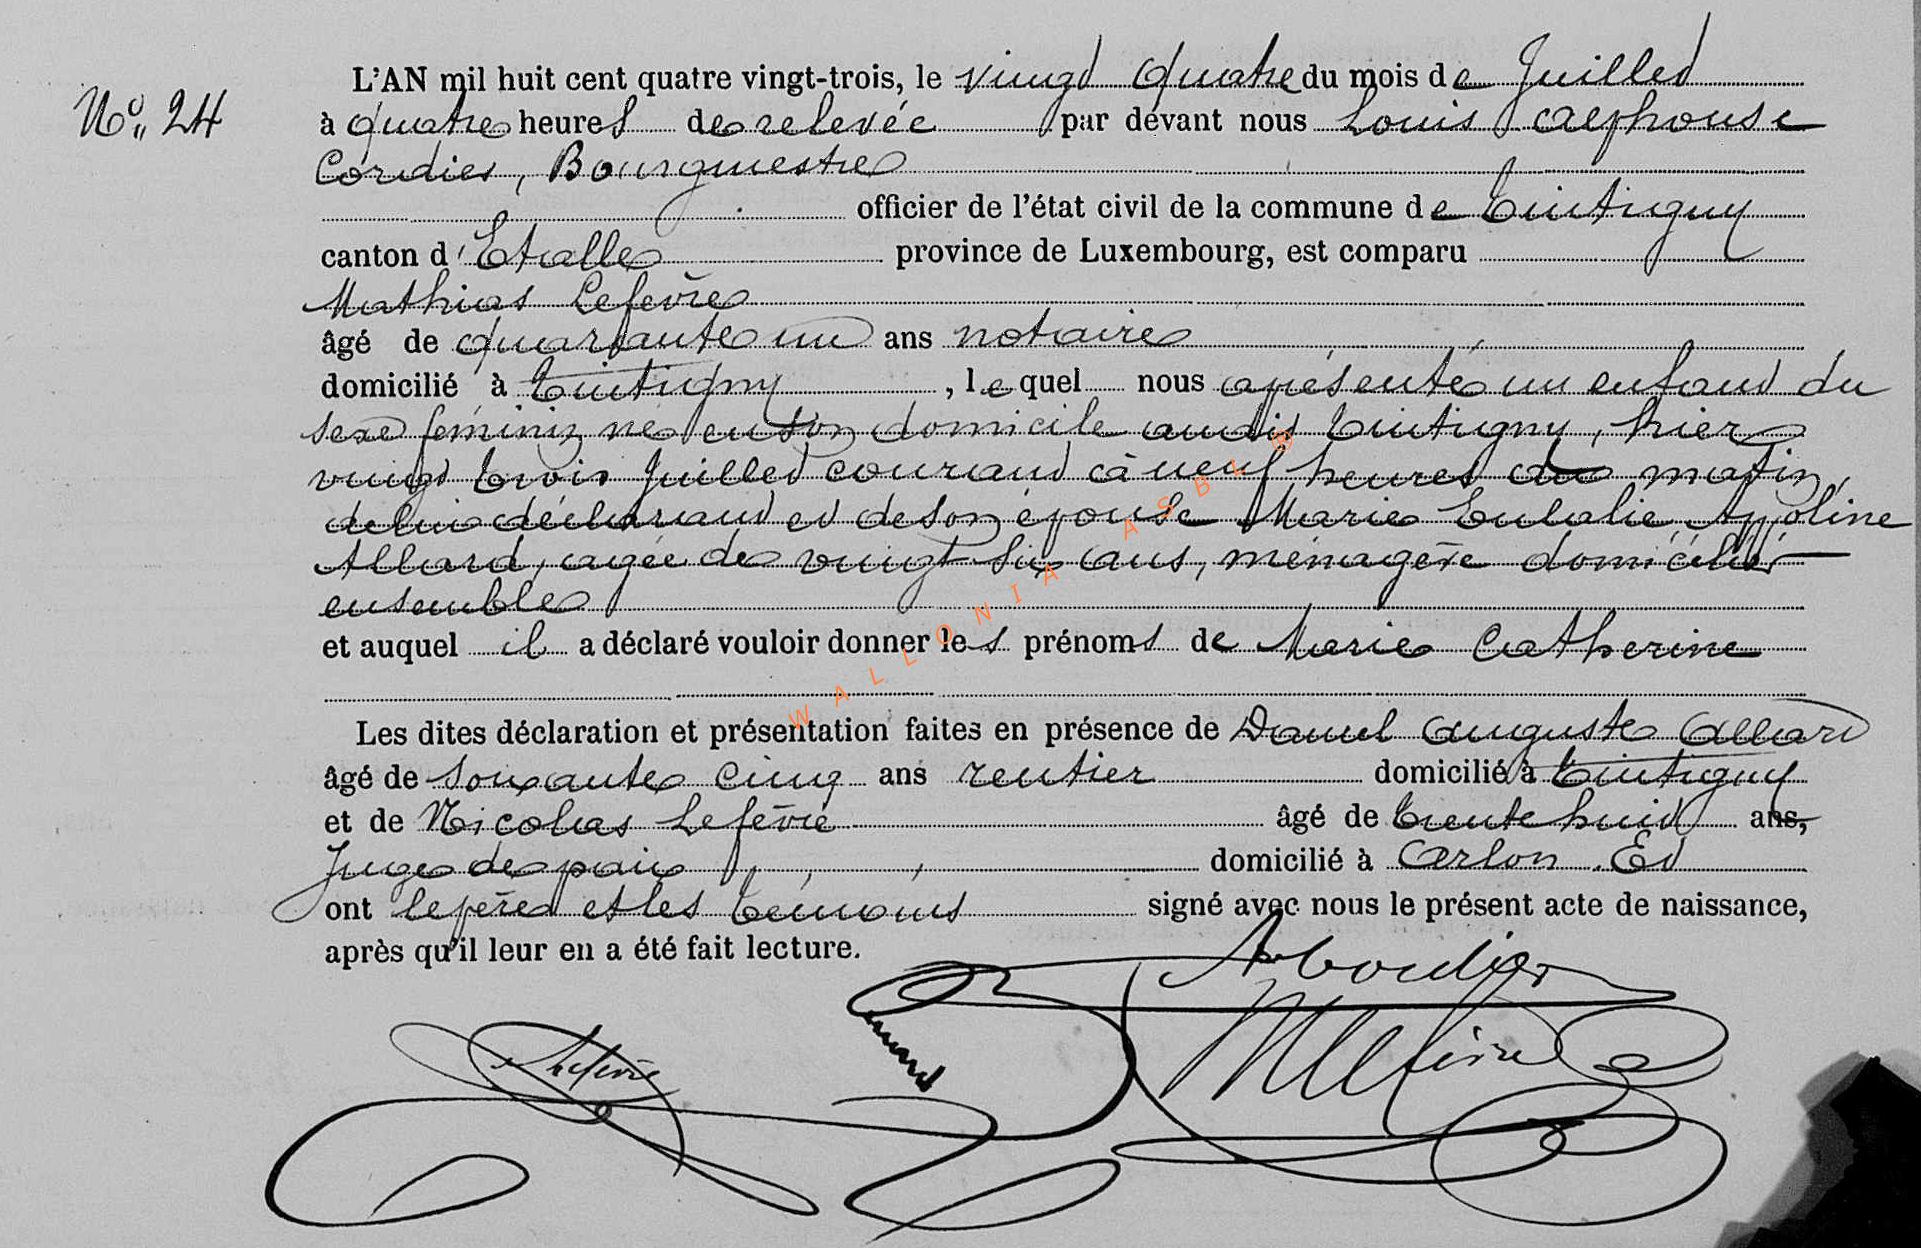 N° 24
L'AN mil huit cent quatre vingt-trois, le vingt quatre du mois de Juillet
à quatre heures de relevée par devant nous Louis Alphonse
Cordier, Bourgmestre
officier de l'état civil de la commune de Tintigny
canton d'Etalle province de Luxembourg, est comparu
Mathias Lefèvre
âgé de quarante un ans notaire
domicilié à Tintigny, lequel nous a présenté un enfant du
sexe féminin né en son domicile audit Tintigny, hier
vingt trois Juillet courant à neuf heures du matin,
de lui déclarant et de son épouse Marie Eulalie Appoline
Allard, agée de vingt six ans, ménagère domiciliés
ensemble
et auquel il a déclaré vouloir donner les prénoms de Marie Catherine
Les dites déclaration et présentation faites en présence de Daniel Auguste Allard
âgé de soixante cinq ans rentier domicilié à Tintigny
et de Nicolas Lefèvre âgé de trente huit ans,
Juge de paix domicilié à Arlon. Et
ont le père et les témoins signé avec nous le présent acte de naissance,
après qu'il leur en a été fait lecture.
A Cordier
Lefèvre
Allard
NLefèvre
WALLONIA ASBL ®